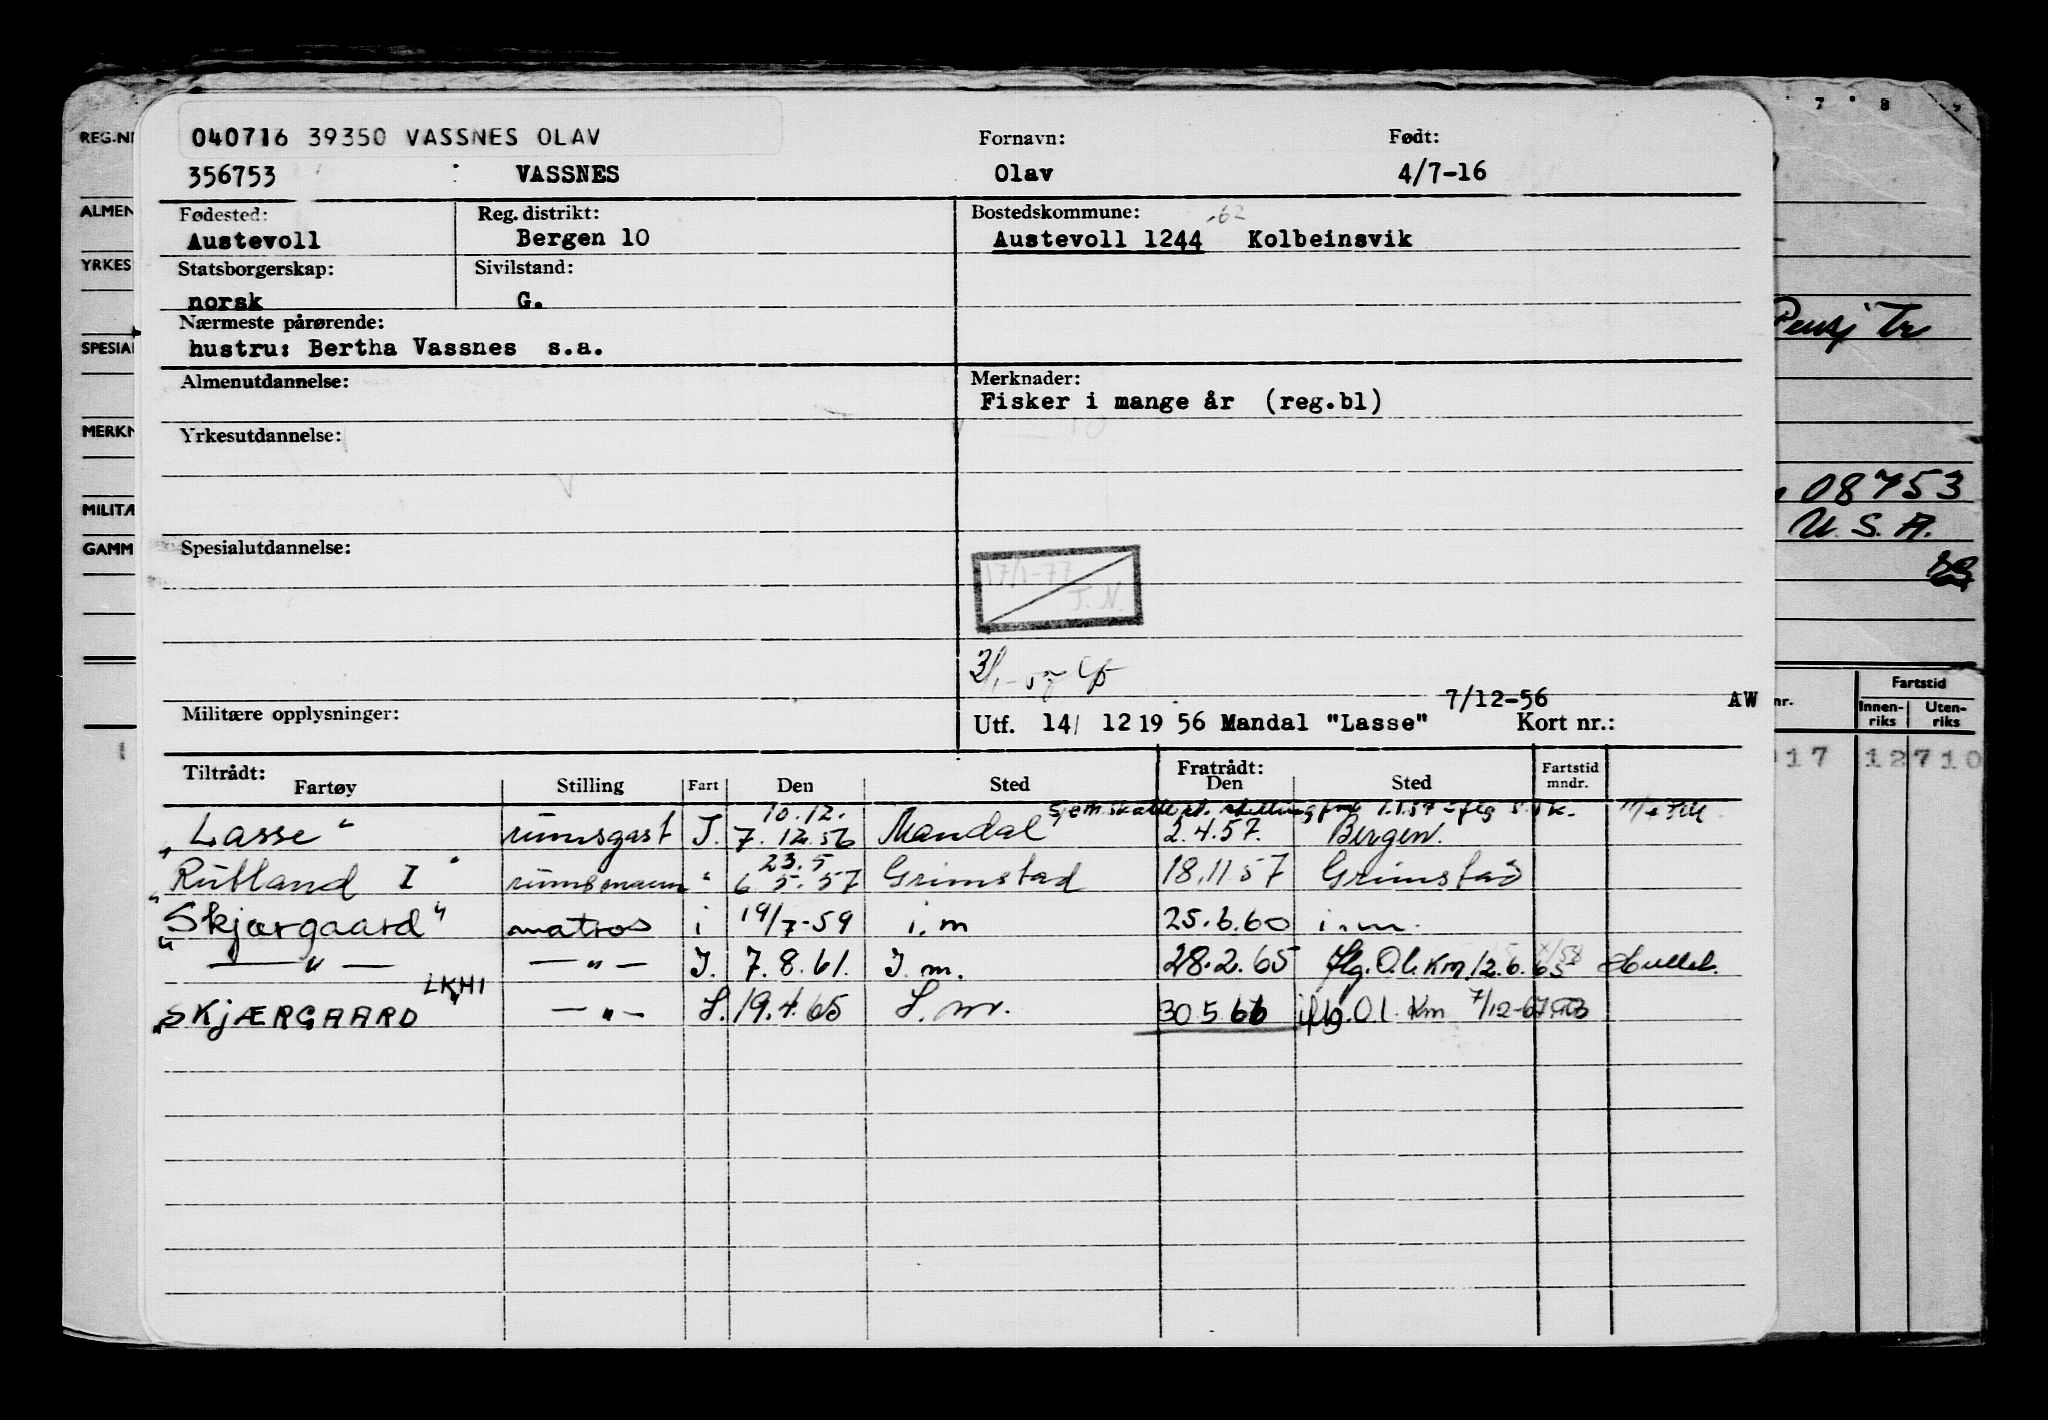 7 8 9
REG.NR
040716 39350 VASSNES OLAV Fornavn: Født:
356753 VASSNES Olav 4/7-16
ALMEN Fødested: Reg. distrikt: Bostedskommune: -62
Austevoll Bergen 10 Austevoll 1244 Kolbeinsvik
YRKES Statsborgerskap: Sivilstand:
norsk G.
Nærmeste pårørende:
SPESIAL hustru: Bertha Vassnes s.a.
Almenutdannelse: Merknader:
Fisker i mange år (reg.bl)
MERKN Yrkesutdannelse:
08753
MILITÆ U.S.A.
GAMM Spesialutdannelse:
17/1-77
J.N.
7/12-56 AW
Militære opplysninger: Utf. 14/ 12 19 56 Mandal "Lasse" Kort nr.:
Fartstid
nr. Innen-riks Uten-riks
1 017 12 710
Tiltrådt: Fratrådt: Fartstid mndr.
Fartøy Stilling Fart Den Sted Den Sted
10.12.
"Lasse" rumsgast I. 7.12.56 Mandal 2.4.57. Bergen.
23.5
"Rutland I" rumsmann " 6 5.57 Grimstad 18.11 57 Grimstad
"Skjærgaard" matros i 19/7-59 i.m 25.6.60 i.m.
"—"— —"— I. 7.8.61. I.m. 28.2.65 flg. O.l. Km. 12.6.65
LKHI
"SKJÆRGAARD —"— I. 19.4.65 I.m. 30.5.66 iflg. O.l. Km 7/12-67